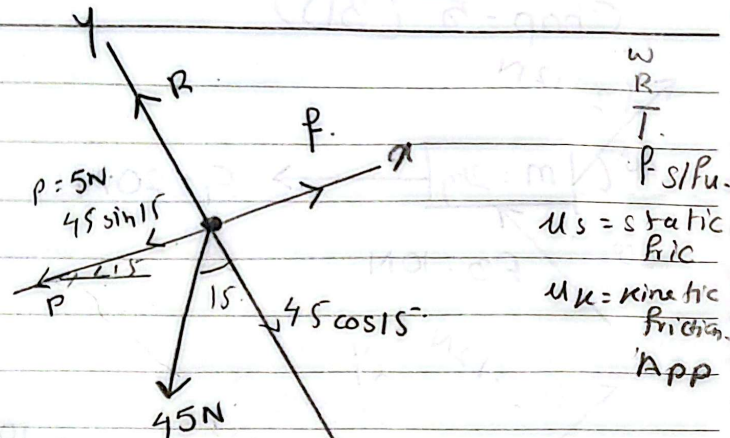 y
R
f.
x
P = 5N.
45 sin 15
15
P
15
45 cos 15
45N
W
R
T.
f s/fu.
us = static
fric
uk = kinetic
friction.
App